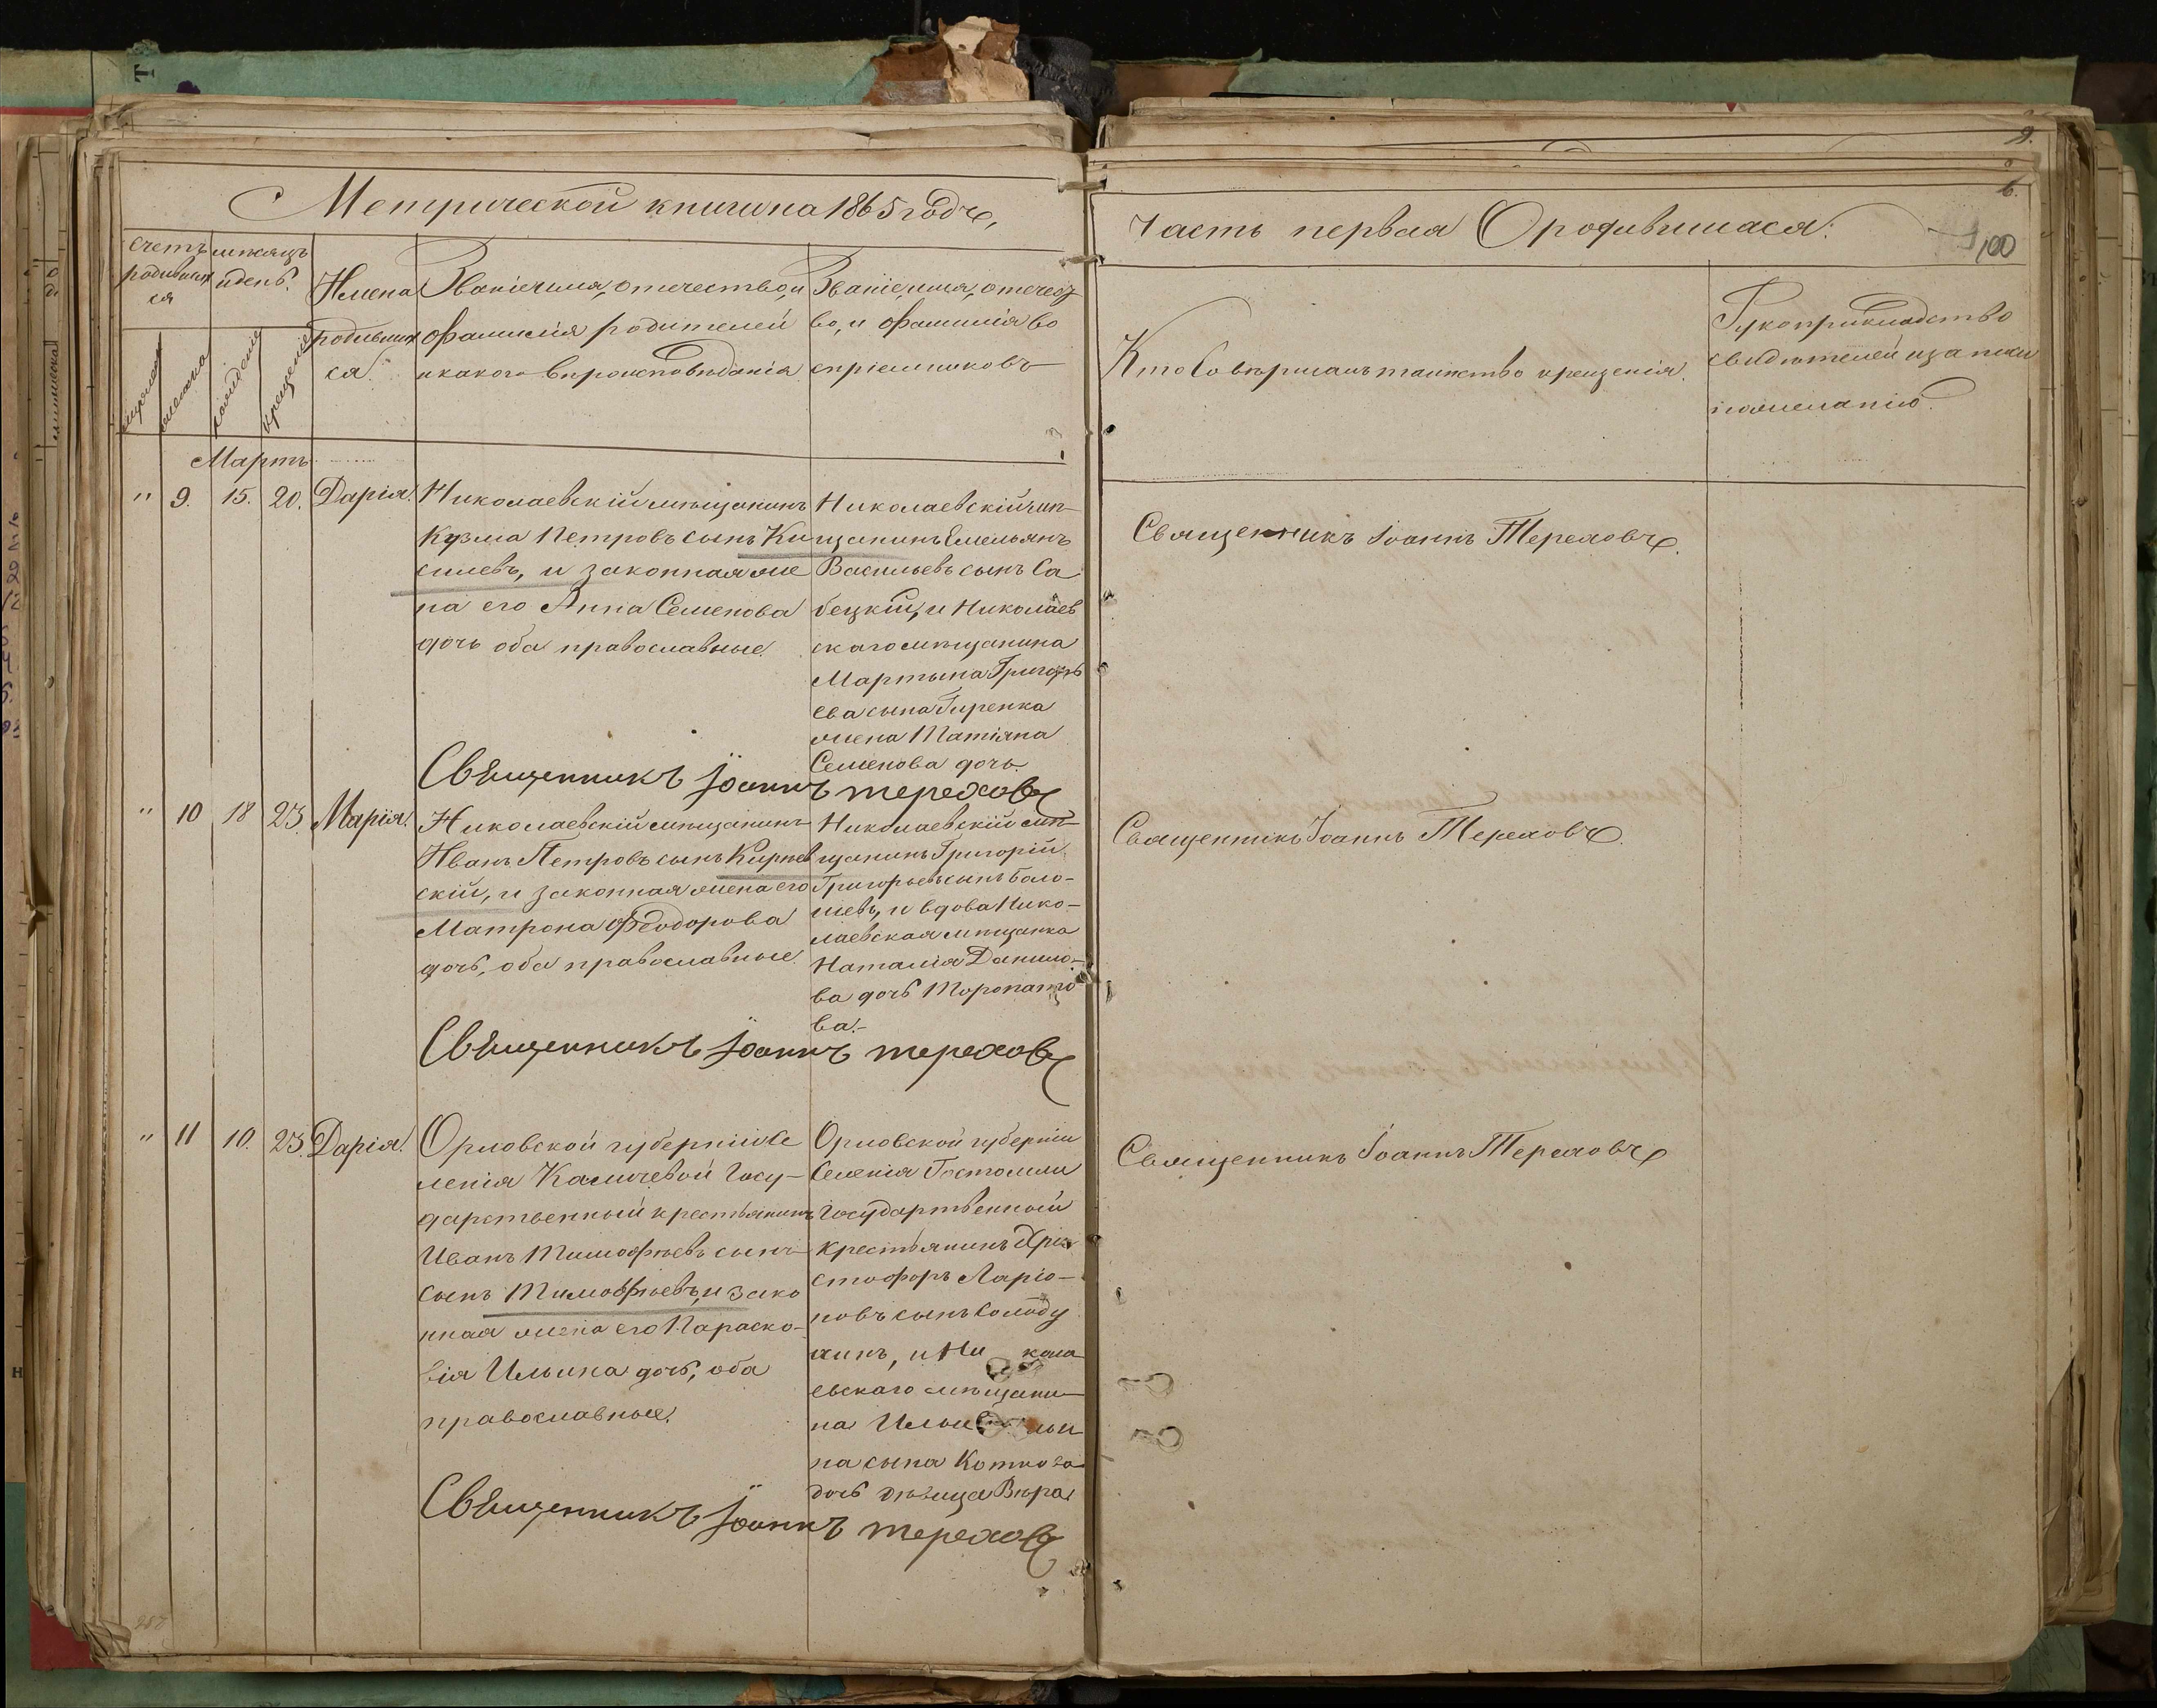 Метрической книги на 1865 годъ,
Часть первая О родившихся.
6.
100
счетъ родившихся
мѣсяцъ и день.
Имена родившихся.
Званіе, имя, отчество, и
фамилія родителей
и какого вѣроисповѣданія
Званіе, имя, отчест
во, и фамилія во
спріемниковъ
Кто совершалъ таинство крещенія.
Рукоприкладство
свидѣтелей записи
по желанію.
мужска
женска
рожденіе
крещеніе
Мартъ
" 9. 15. 20. Дарія.
Николаевскій мѣщанинъ
Кузма Петровъ сынъ Ки
силевъ, и законная же
на его Анна Семенова
дочь оба православные.
Николаевскій мѣ-
щанинъ Емельянъ
Васильевъ сынъ Са
бецкій, и Николаев
скаго мѣщанина
Мартына Григорь
ева сына Гиренка
жена Татіана
Семенова дочь.
Священникъ Іоаннъ Тереховъ.
Священникъ Іоаннъ Тереховъ
" 10 18 23. Марія.
Николаевскій мѣщанинъ
Иванъ Петровъ сынъ Кирѣев
скій, и законная жена его
Матрона Феодорова
дочь, оба православные.
Николаевскій мѣ-
щанинъ Григорій
Григорьевъ сынъ Боло-
шевъ, и вдова Нико-
лаевская мѣщанка
Наталія Данило-
ва дочь Торопато
ва.-
Священникъ Іоаннъ Тереховъ.
Священникъ Іоаннъ Тереховъ
" 11 10. 23. Дарія.
Орловской губерніи Се
ленія Каличевой Госу-
дарственный крестьянинъ
Иванъ Тимофѣевъ сынъ
сынъ Тимофѣевъ, и зако
нная жена его Параско-
вія Ильина дочь, оба
православные.
Орловской губерніи
Селенія Гостомли
Государственный
крестьянинъ Хри
стофоръ Ларіо-
новъ сынъ Солоду
хинъ, и Ни кола
евскаго мѣщани-
на Ильи
на сына Коткова
дочь дѣвица Вѣра
Священникъ Іоаннъ Тереховъ
Священникъ Іоаннъ Тереховъ